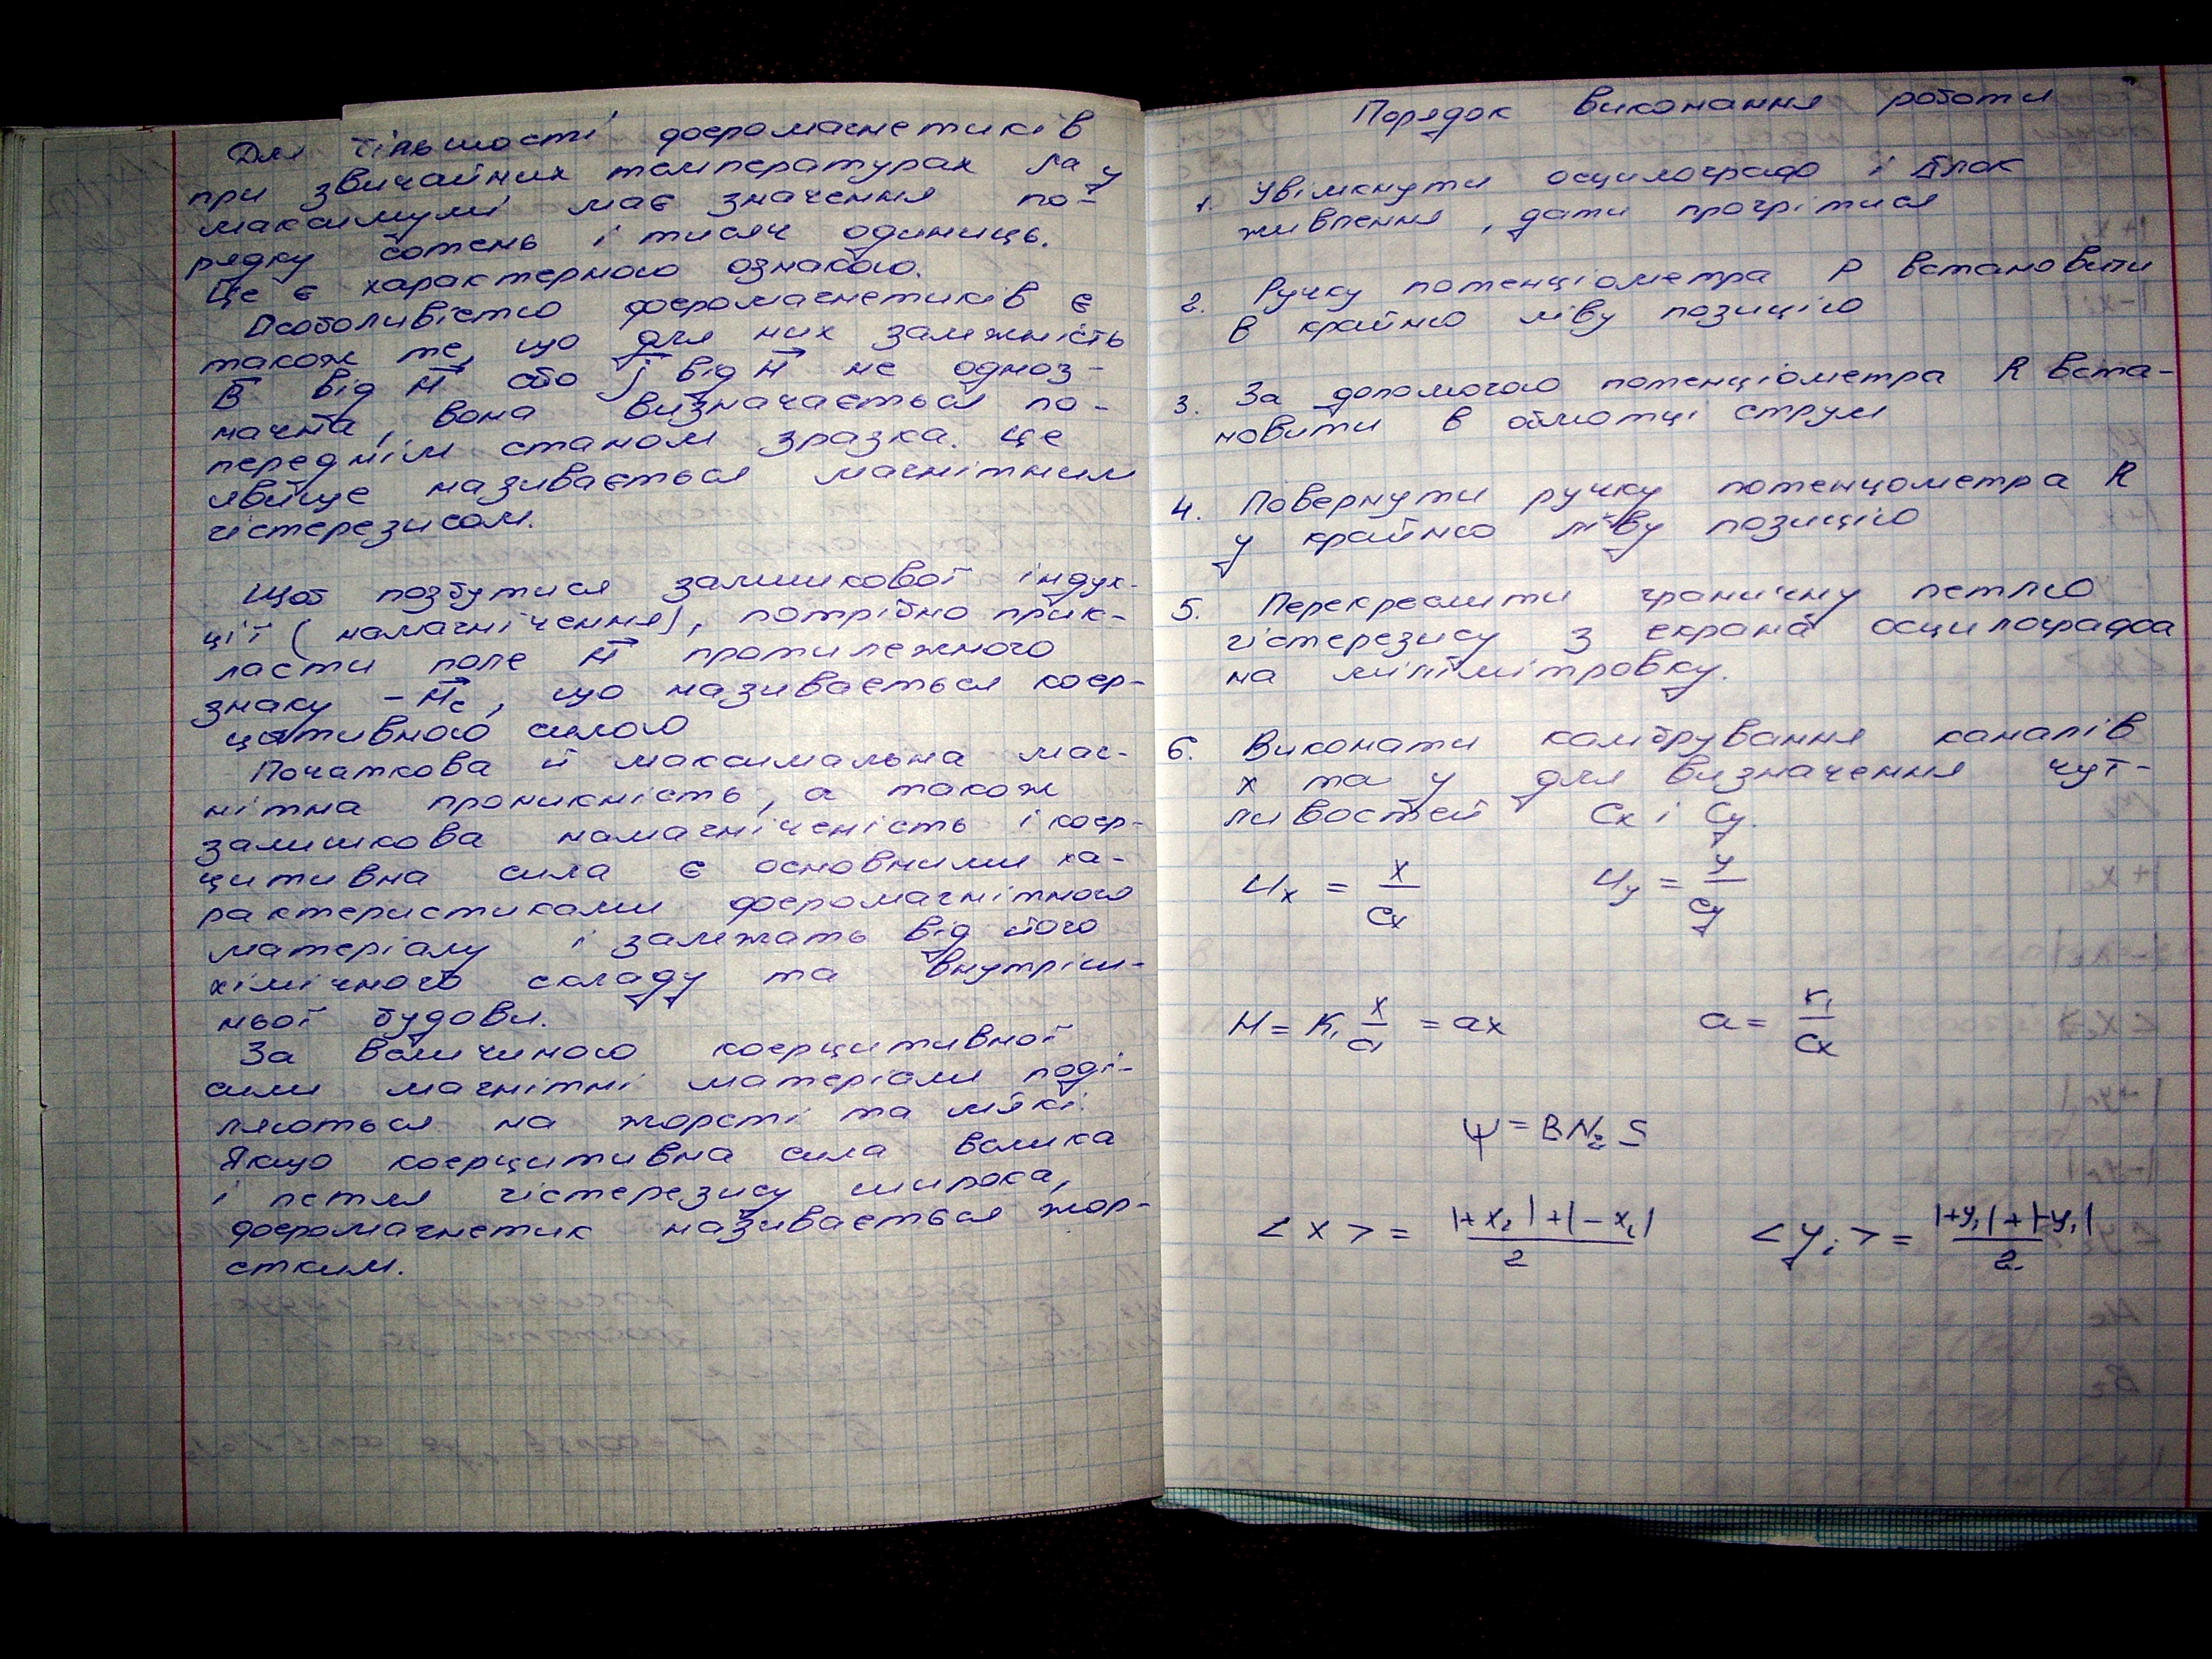 Для більшості феромагнетиків
при звичайних температурах μа у
максимумі має значення по-
рядку сотень і тисяч одиниць.
Це є характерною ознакою.
Особливістю феромагнетиків є
також те, що для них залежність
B від H або J від H не одноз-
начна, вона визначається по-
переднім станом зразка. Це
явище називається магнітним
гістерезисом.
Щоб позбутися залишкової індук-
ції (намагнічення), потрібно прик-
ласти поле H протилежного
знаку -Hc, що називається коер-
цитивною силою
Початкова й максимальна маг-
нітна проникність, а також
залишкова намагніченість і коер-
цитивна сила є основними ха-
рактеристиками феромагнітного
матеріалу і залежать від його
хімічного складу та внутріш-
ньої будови.
За величиною коерцитивної
сили магнітні матеріали поді-
ляються на жорсті та м'які.
Якщо коерцитивна сила велика
і петля гістерезису широка,
феромагнетик називається жор-
стким.
Порядок виконання роботи
1. Увімкнути осцилограф і блок
живлення, дати прогрітися
2. Ручку потенціометра P встановити
в крайню ліву позицію
3. За допомогою потенціометра R вста-
новити в обмотці струм
4. Повернути ручку потенцометра R
у крайню ліву позицію
5. Перекреслити граничну петлю
гістерезису з екрана осцилографа
на міліметровку.
6. Виконати калібрування каналів
x та y для визначення чут-
ливостей Cx і Cy.
Ux = x/Cx Uy = y/Cy
H = K₁ x/a = ax a = r₁/Cx
Ψ = BN₂S
<x> = |+x₂|+|-x₂|/2 <yᵢ> = |+yᵢ|+|-yᵢ|/2